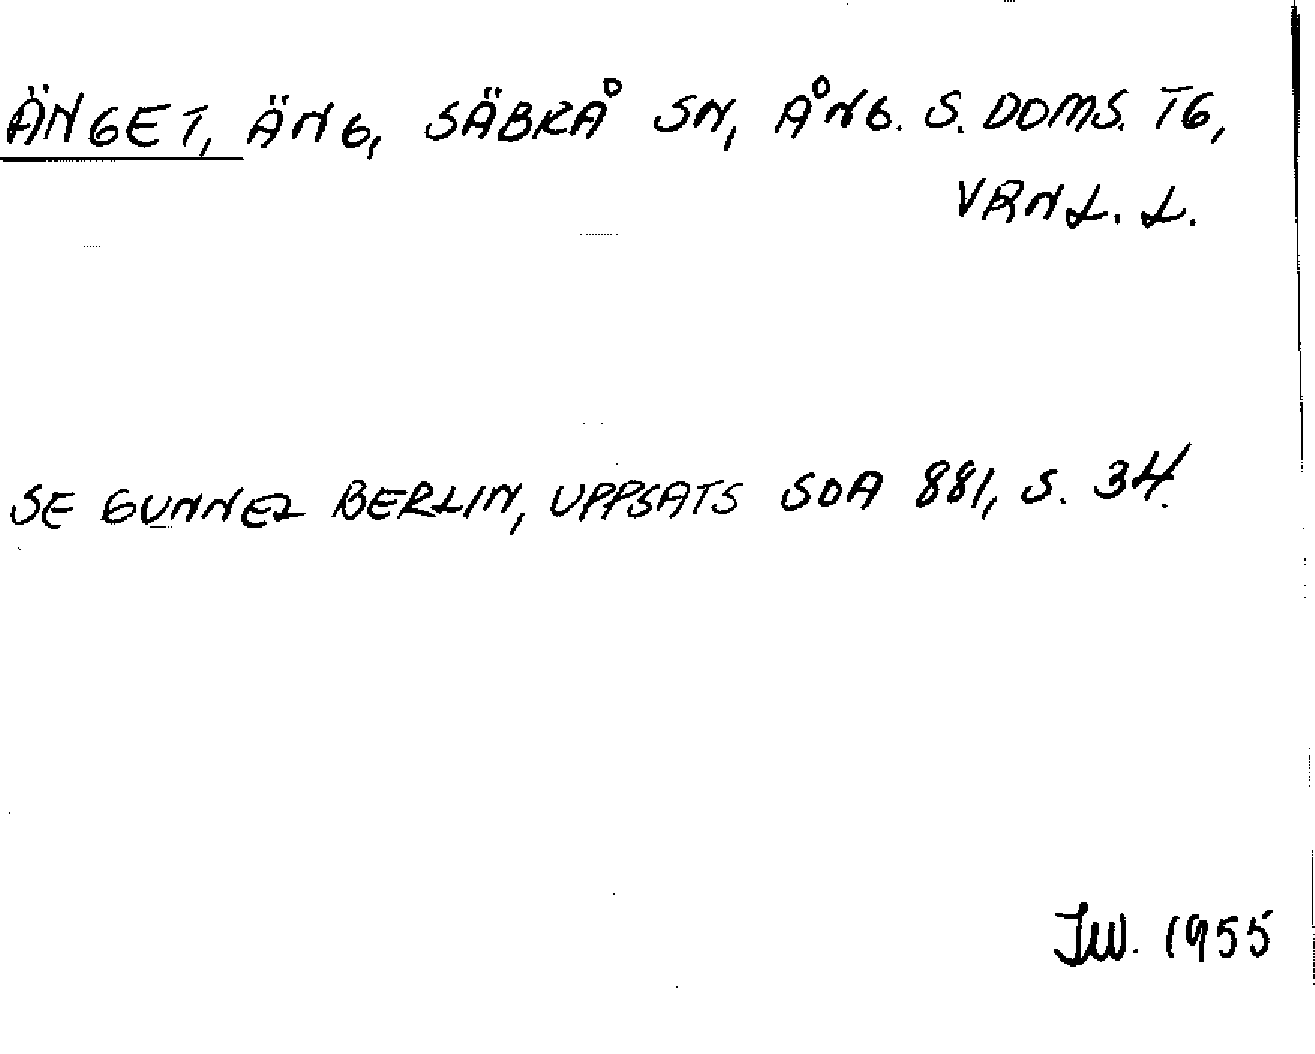 ÄNGET, ÄNG, SÄBRÅ SN, ÅNG. S. DOMS. TG,
VRNL. L.
SE GUNNEL BERLIN, UPPSATS SOA 881, S. 34.
JW. 1955